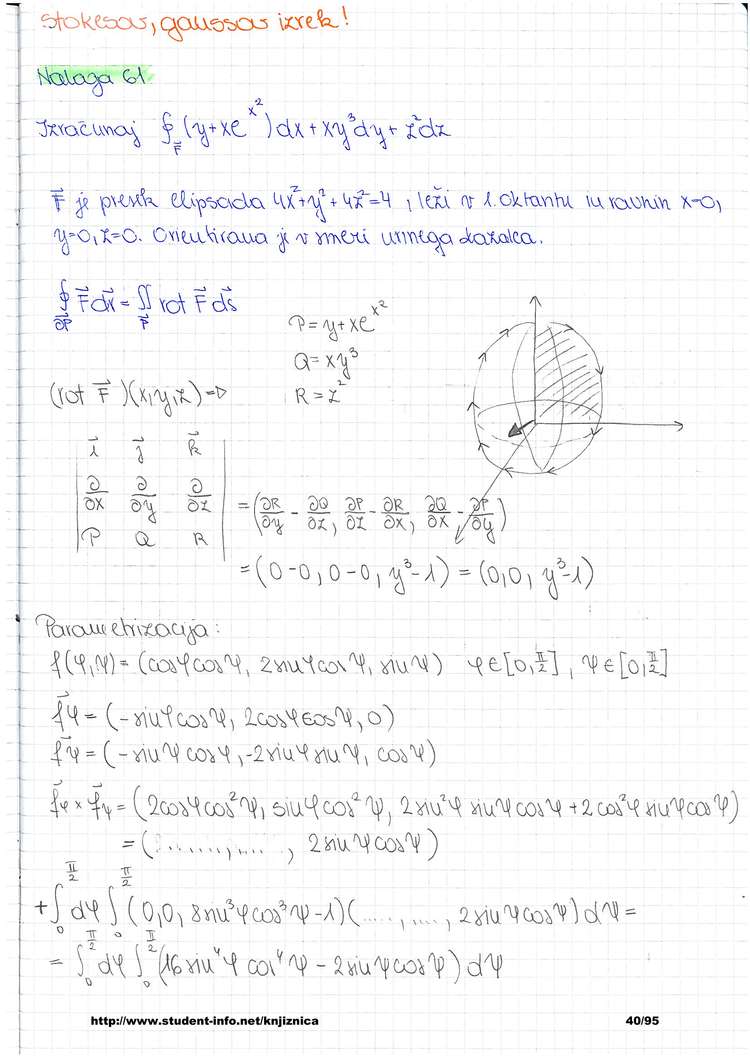 stokesov, gaussov izrek!
Naloga 61
Izračunaj ∮_F⃗ (y+xe^(x²))dx+xy³dy+z²dz
F⃗ je presek elipsoida 4x²+y²+4z²=4, leži v 1. oktantu in ravnin x=0,
y=0, z=0. Orientirana je v smeri urinega kazalca.
∮_∂P⃗ F⃗dr⃗ = ∬_P⃗ rot F⃗ds⃗
P=y+xe^(x²)
Q=xy³
R=z²
(rot F⃗)(x,y,z) =>
| i⃗ j⃗ k⃗ |
| ∂/∂x ∂/∂y ∂/∂z | = (∂R/∂y - ∂Q/∂z, ∂P/∂z - ∂R/∂x, ∂Q/∂x - ∂P/∂y)
| P Q R |
=(0-0, 0-0, y³-1) = (0,0, y³-1)
Parametrizacija:
f(φ,ψ)=(cosφcosψ, 2sinφcosψ, sinψ) φ∈[0,π/2], ψ∈[0,π/2]
f⃗φ=(-sinφcosψ, 2cosφcosψ, 0)
f⃗ψ=(-sinψcosφ, -2sinφsinψ, cosψ)
f⃗φ × f⃗ψ = (2cosφcos²ψ, sinφcos²ψ, 2sin²φ sinψcosψ + 2cos²φ sinψcosψ)
= (........, ....., 2sinψcosψ)
+∫₀^(π/2) dφ ∫₀^(π/2) (0,0, 8sin³φcos³ψ-1)(....., ...., 2sinψcosψ)dψ =
= ∫₀^(π/2) dφ ∫₀^(π/2) (16sin⁴φ cos⁴ψ - 2sinψcosψ) dψ
http://www.student-info.net/knjiznica
40/95